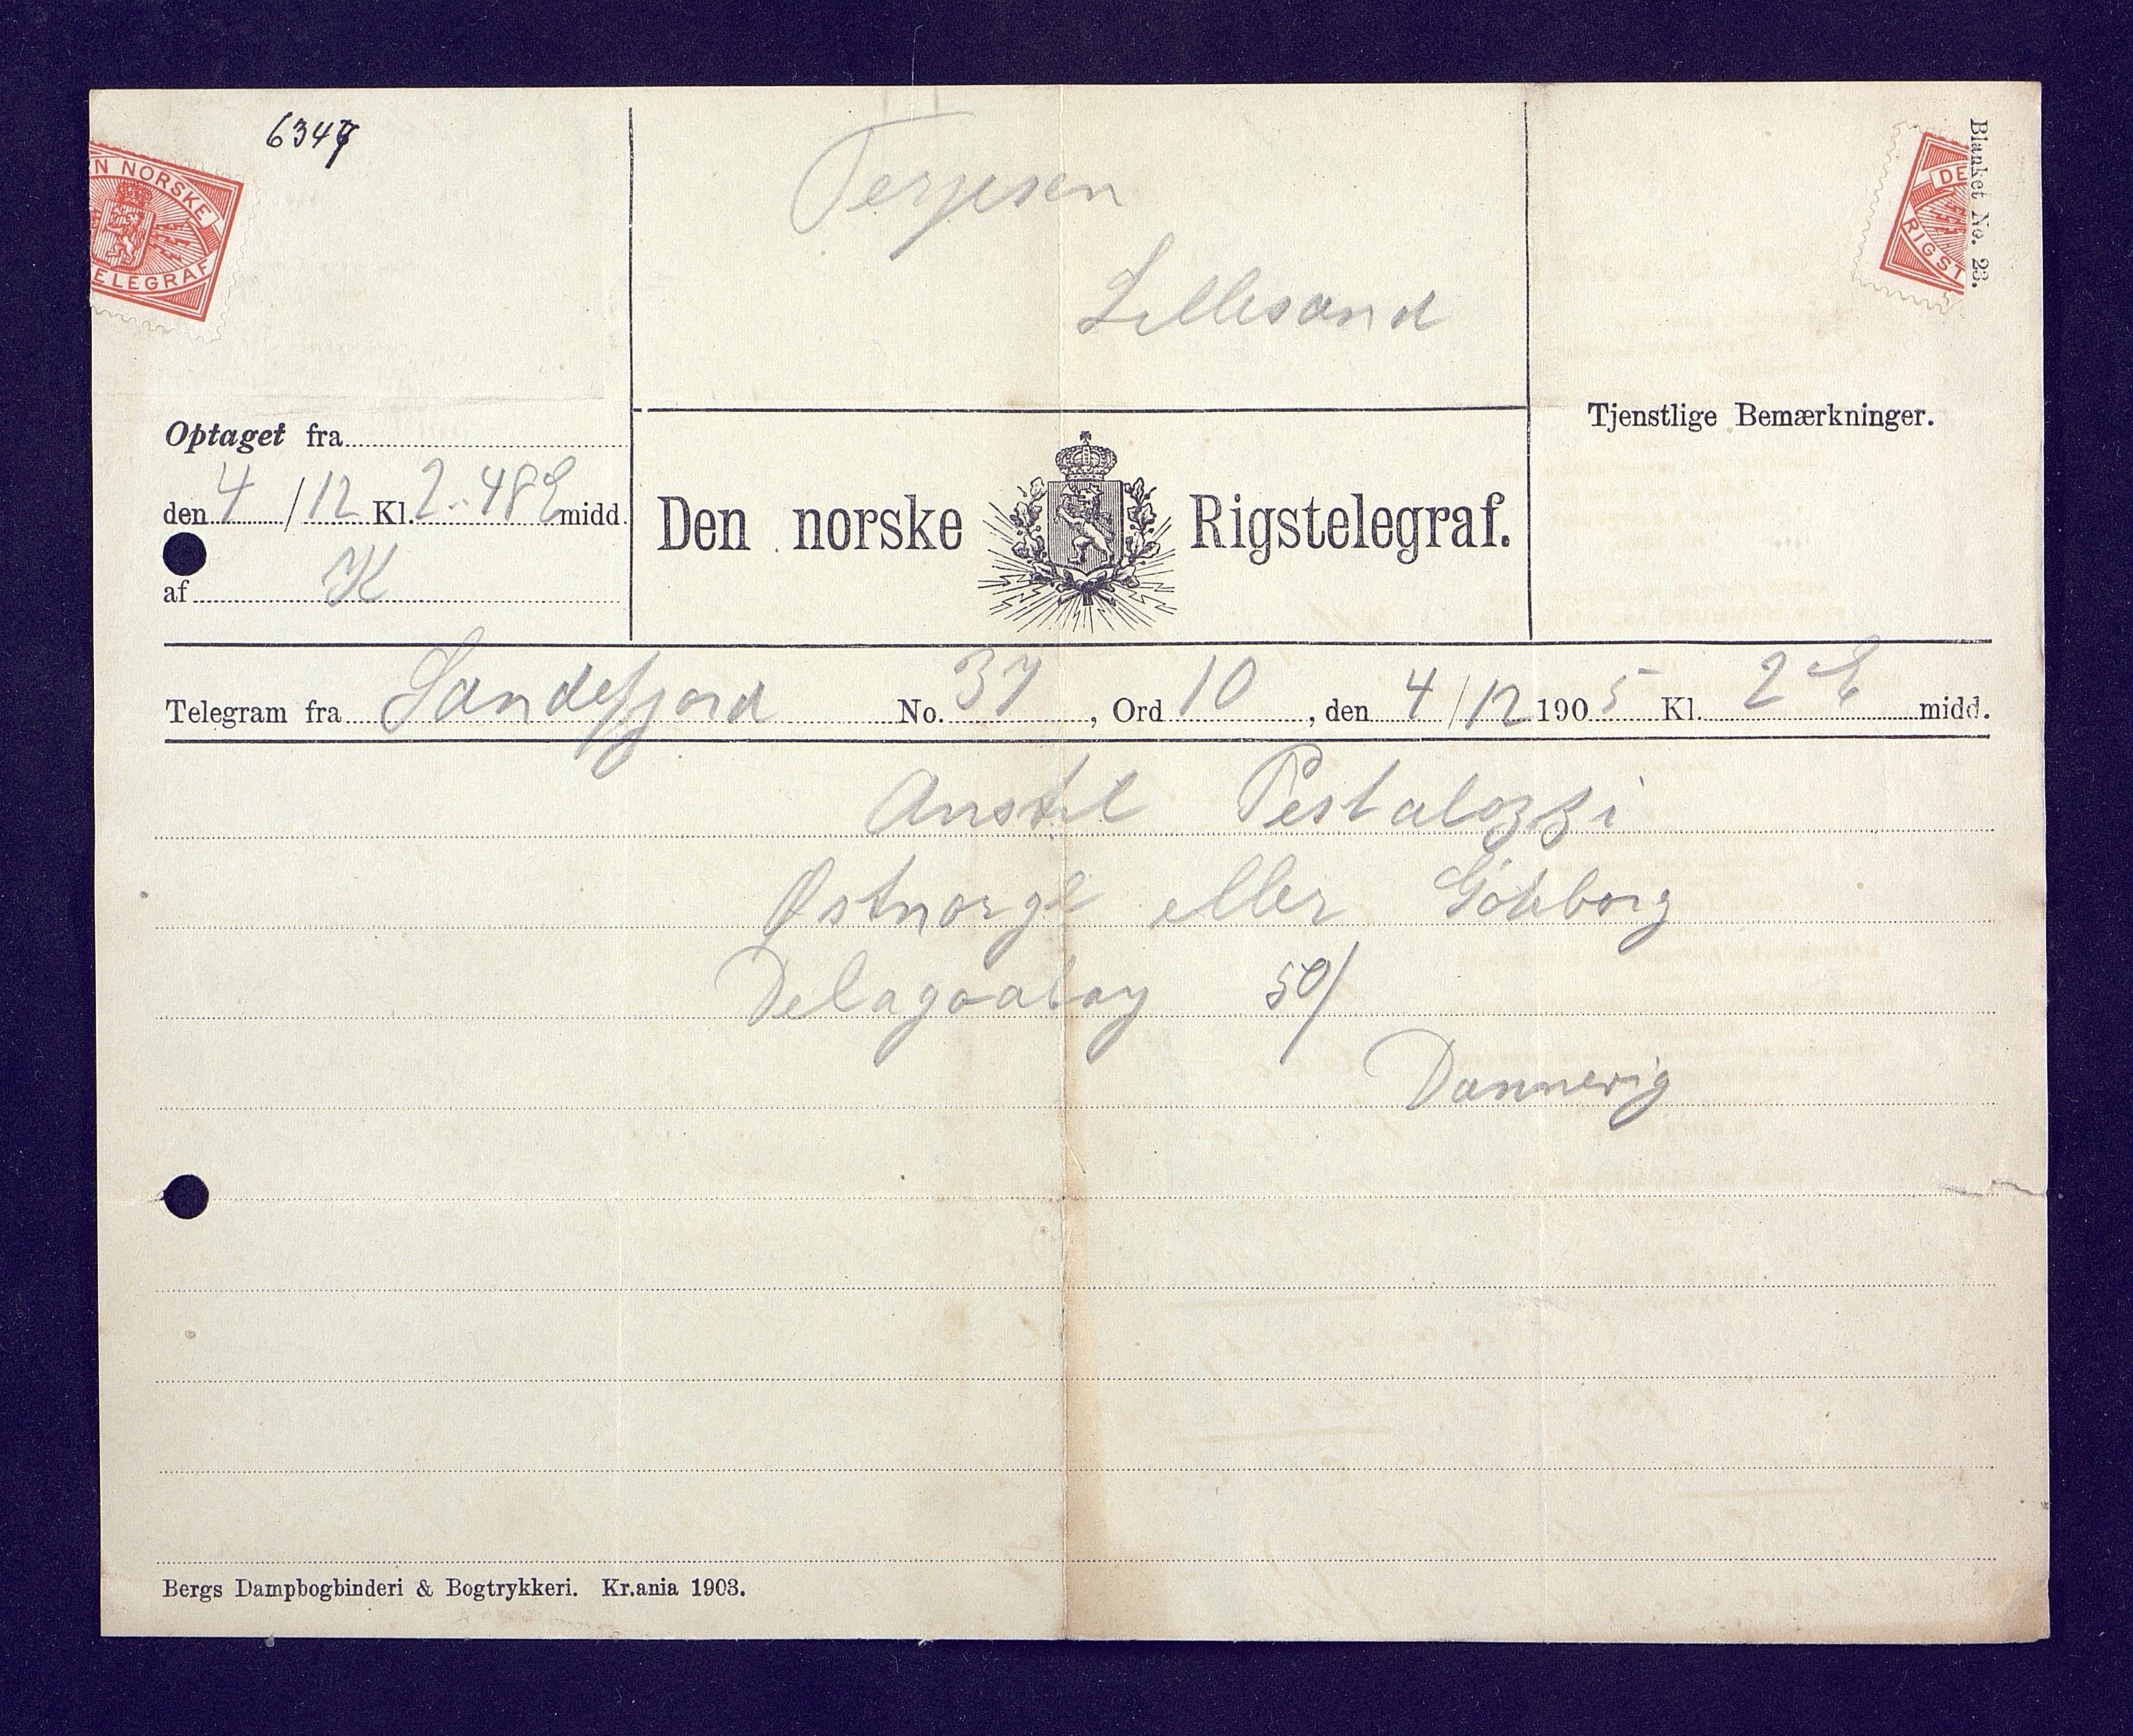 6347
N NORSKE
ELEGRAF
Terjesen
Lillesand
DE
RIGST
Blanket No. 23.
Optaget fra
den 4/12 Kl. 2-48 E midd.
af K
Den norske Rigstelegraf.
Tjenstlige Bemærkninger.
Telegram fra Sandefjord No. 37, Ord 10, den 4/12 1905 Kl. 2 E midd.
Anstil Pestalozzi
Østnorge eller Göteborg
Delagoabay 50/
Dannevig
Bergs Dampbogbinderi & Bogtrykkeri. Kr.ania 1903.